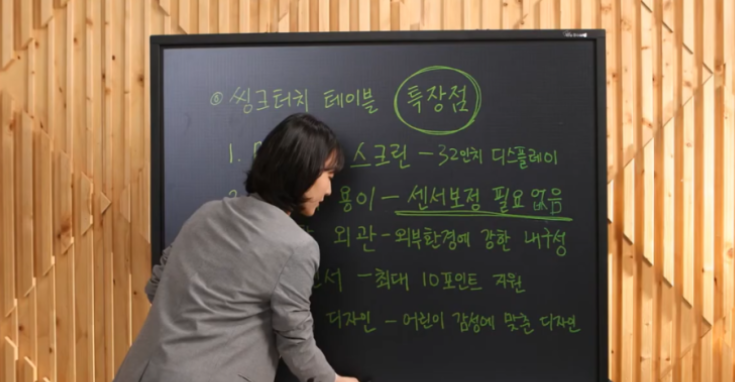 ⊙ 씽크터치 테이블 특장점
1. 스크린 - 32인치 디스플레이
2. 용이 - 센서보정 필요 없음
외관 - 외부환경에 강한 내구성
서 - 최대 10포인트 지원
디자인 - 어린이 감성에 맞춘 디자인